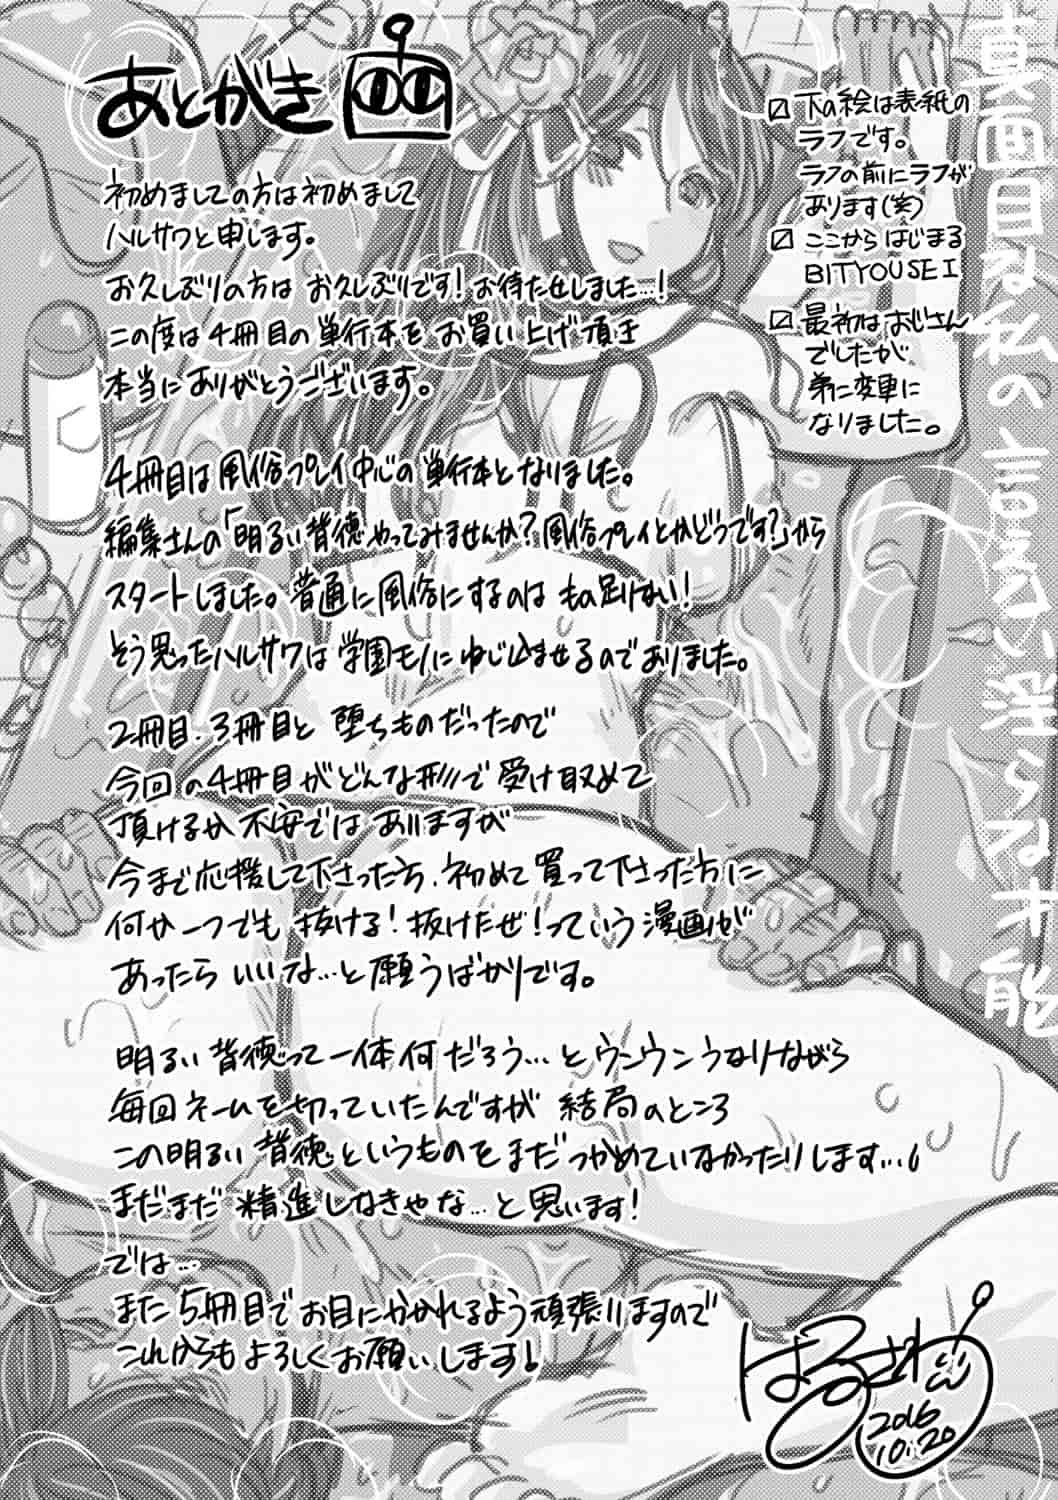 あとがき
初めましての方は初めまして
ハルサワと申します。
お久しぶりの方は お久しぶりです！お待たせしました…！
この度は4冊目の単行本を お買い上げ頂き
本当にありがとうございます。
4冊目は風俗プレイ中心の単行本となりました。
編集さんの「明るい背徳やってみませんか？風俗プレイとかどうです？」から
スタートしました。普通に風俗にするのは もの足りない！
そう思ったハルサワは学園モノにねじ込ませるのでありました。
2冊目、3冊目と 堕ちものだったので
今回の4冊目がどんな形で受け取めて
頂けるか不安ではありますが
今まで応援して下さった方、初めて買って下さった方に
何か一つでも 抜ける！抜けたぜ！っていう漫画が
あったら いいな…と願うばかりです。
明るい背徳って一体何だろう…とウンウンうなりながら
毎回ネームを切っていたんですが 結局のところ
この明るい背徳というものをまだつかめていなかったりします…。
まだまだ 精進しなきゃな…と思います！
では…
また5冊目でお目にかかれるよう頑張りますので
これからもよろしくお願いします！
下の絵は表紙の
ラフです。
ラフの前にラフが
あります(笑)
ここからはじまる
BITYOUSEI
最初はおじさん
でしたが
弟に変更に
なりました。
真面目な私の言えない淫らな才能
はるさわ
2016
10.20